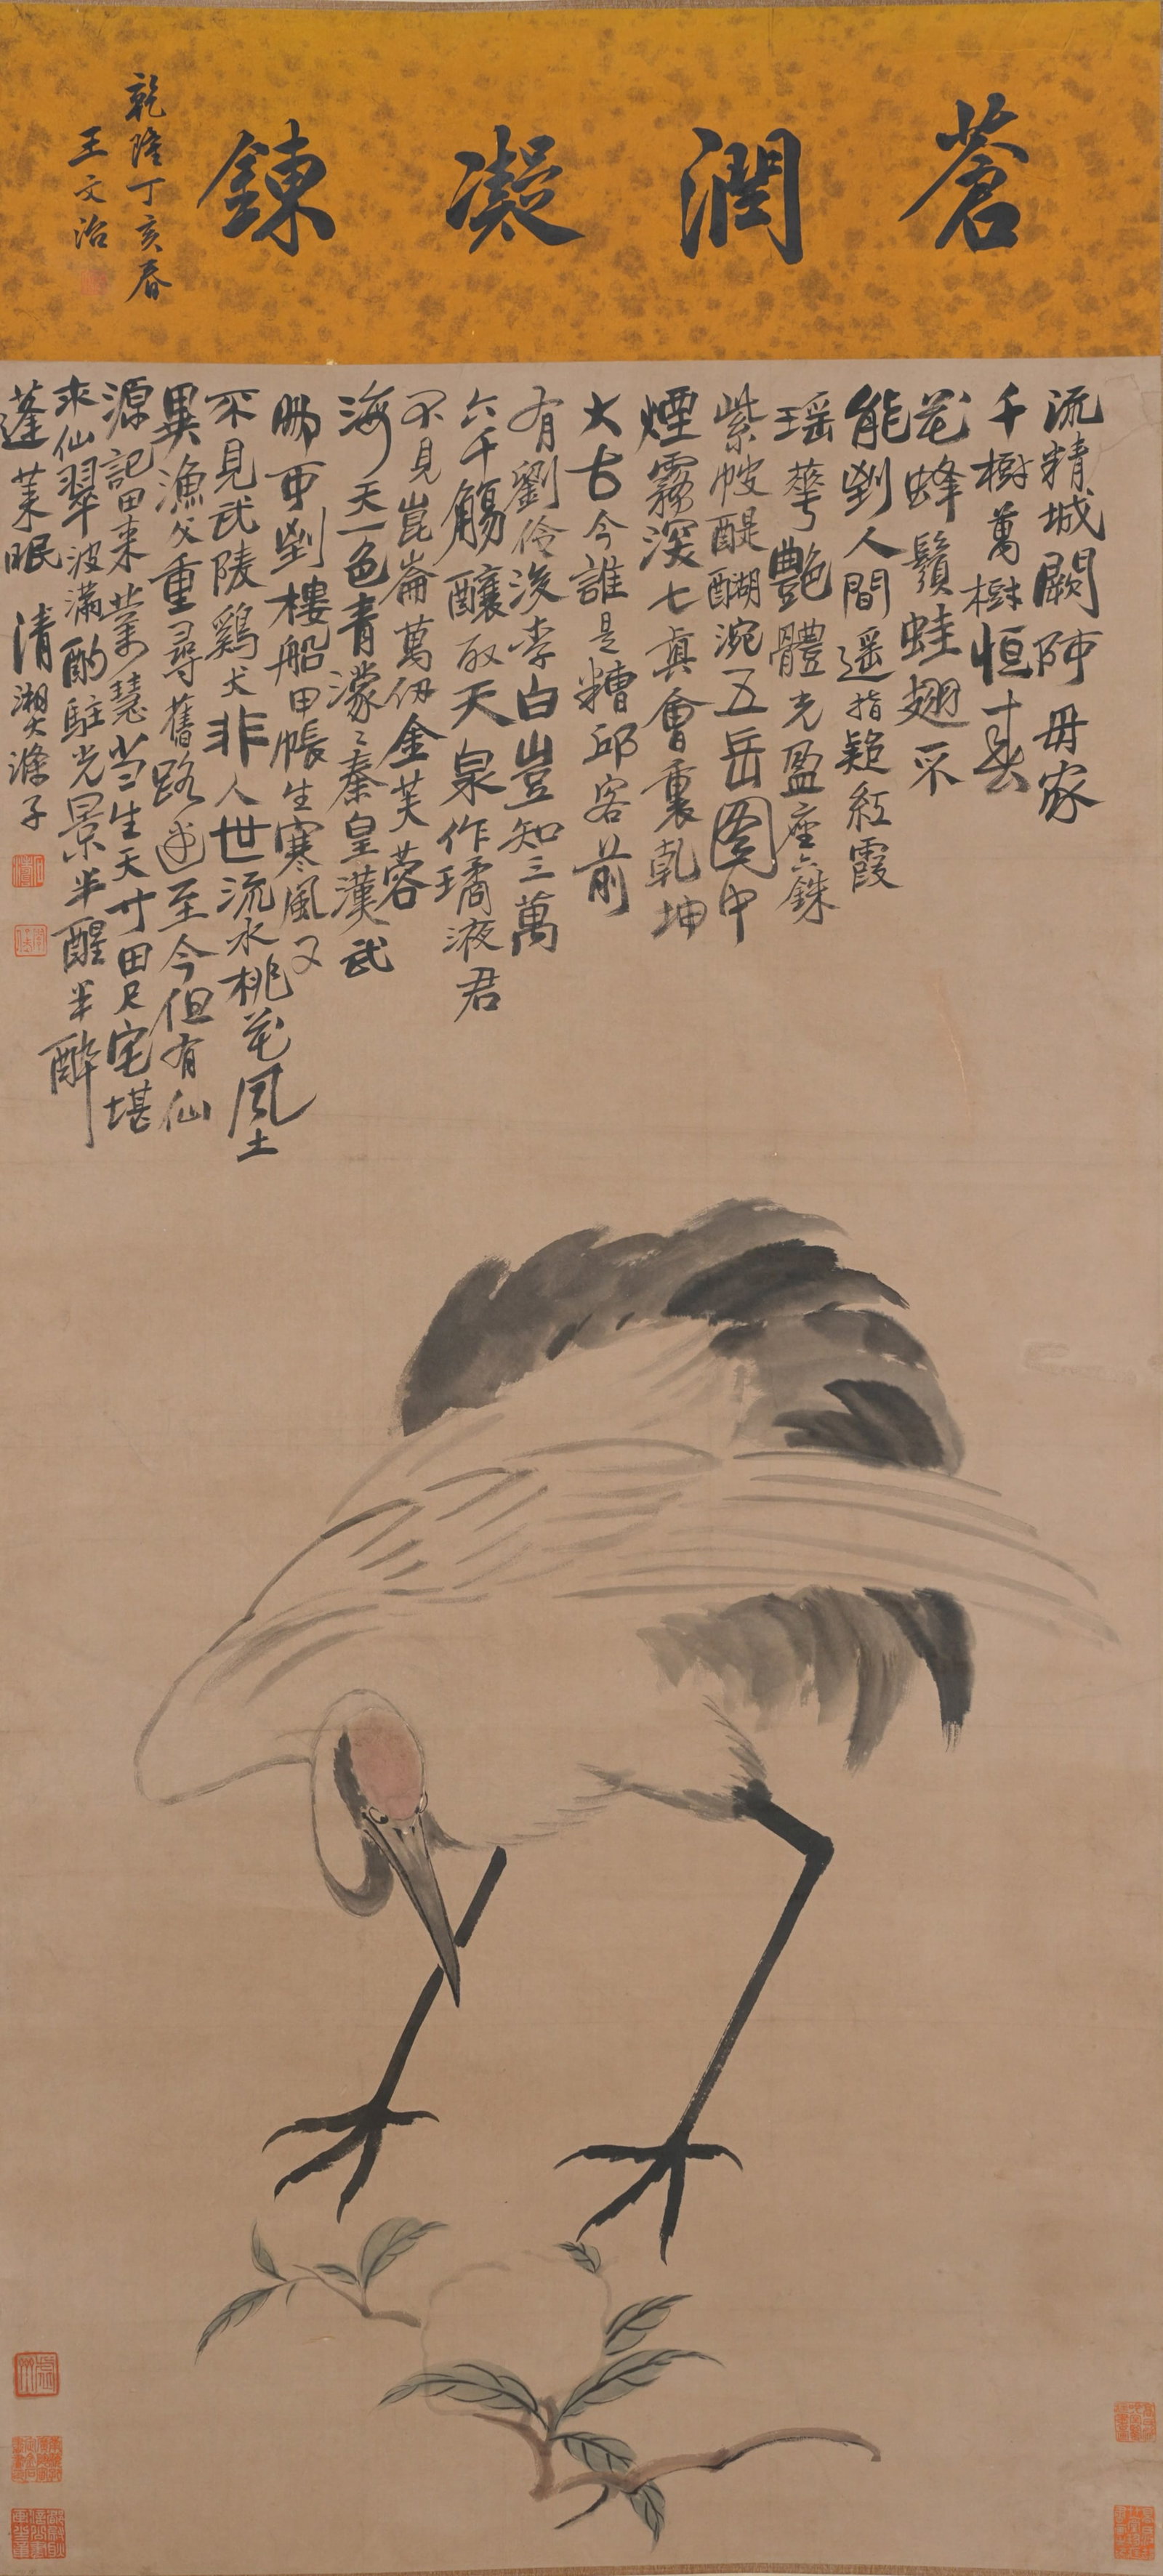 蒼潤凝鍊
乾隆丁亥春
王文治
流精城闕陣毋家
千樹萬樹恒春
花蜂鬚蛙翅不
能到人間遥指疑紅霞
瑶華艷體光盈座六銖
紫帔醍醐涴五岳圖中
煙霧深七真會裏乾坤
大古今誰是糟邱客前
有劉伶後李白豈知三萬
六千觴釀取天泉作璚液君
不見崑崙萬仞金芙蓉
海天一色青濛〻秦皇漢武
那更到樓船甲帳生寒風又
不見武陵鷄犬非人世流水桃花風土
異漁父重尋舊路迷至今但有仙
源記田來業慧當生天寸田尺宅堪
求仙翠波滿酌駐光景半醒半醉
蓬萊眠 清湘大滌子